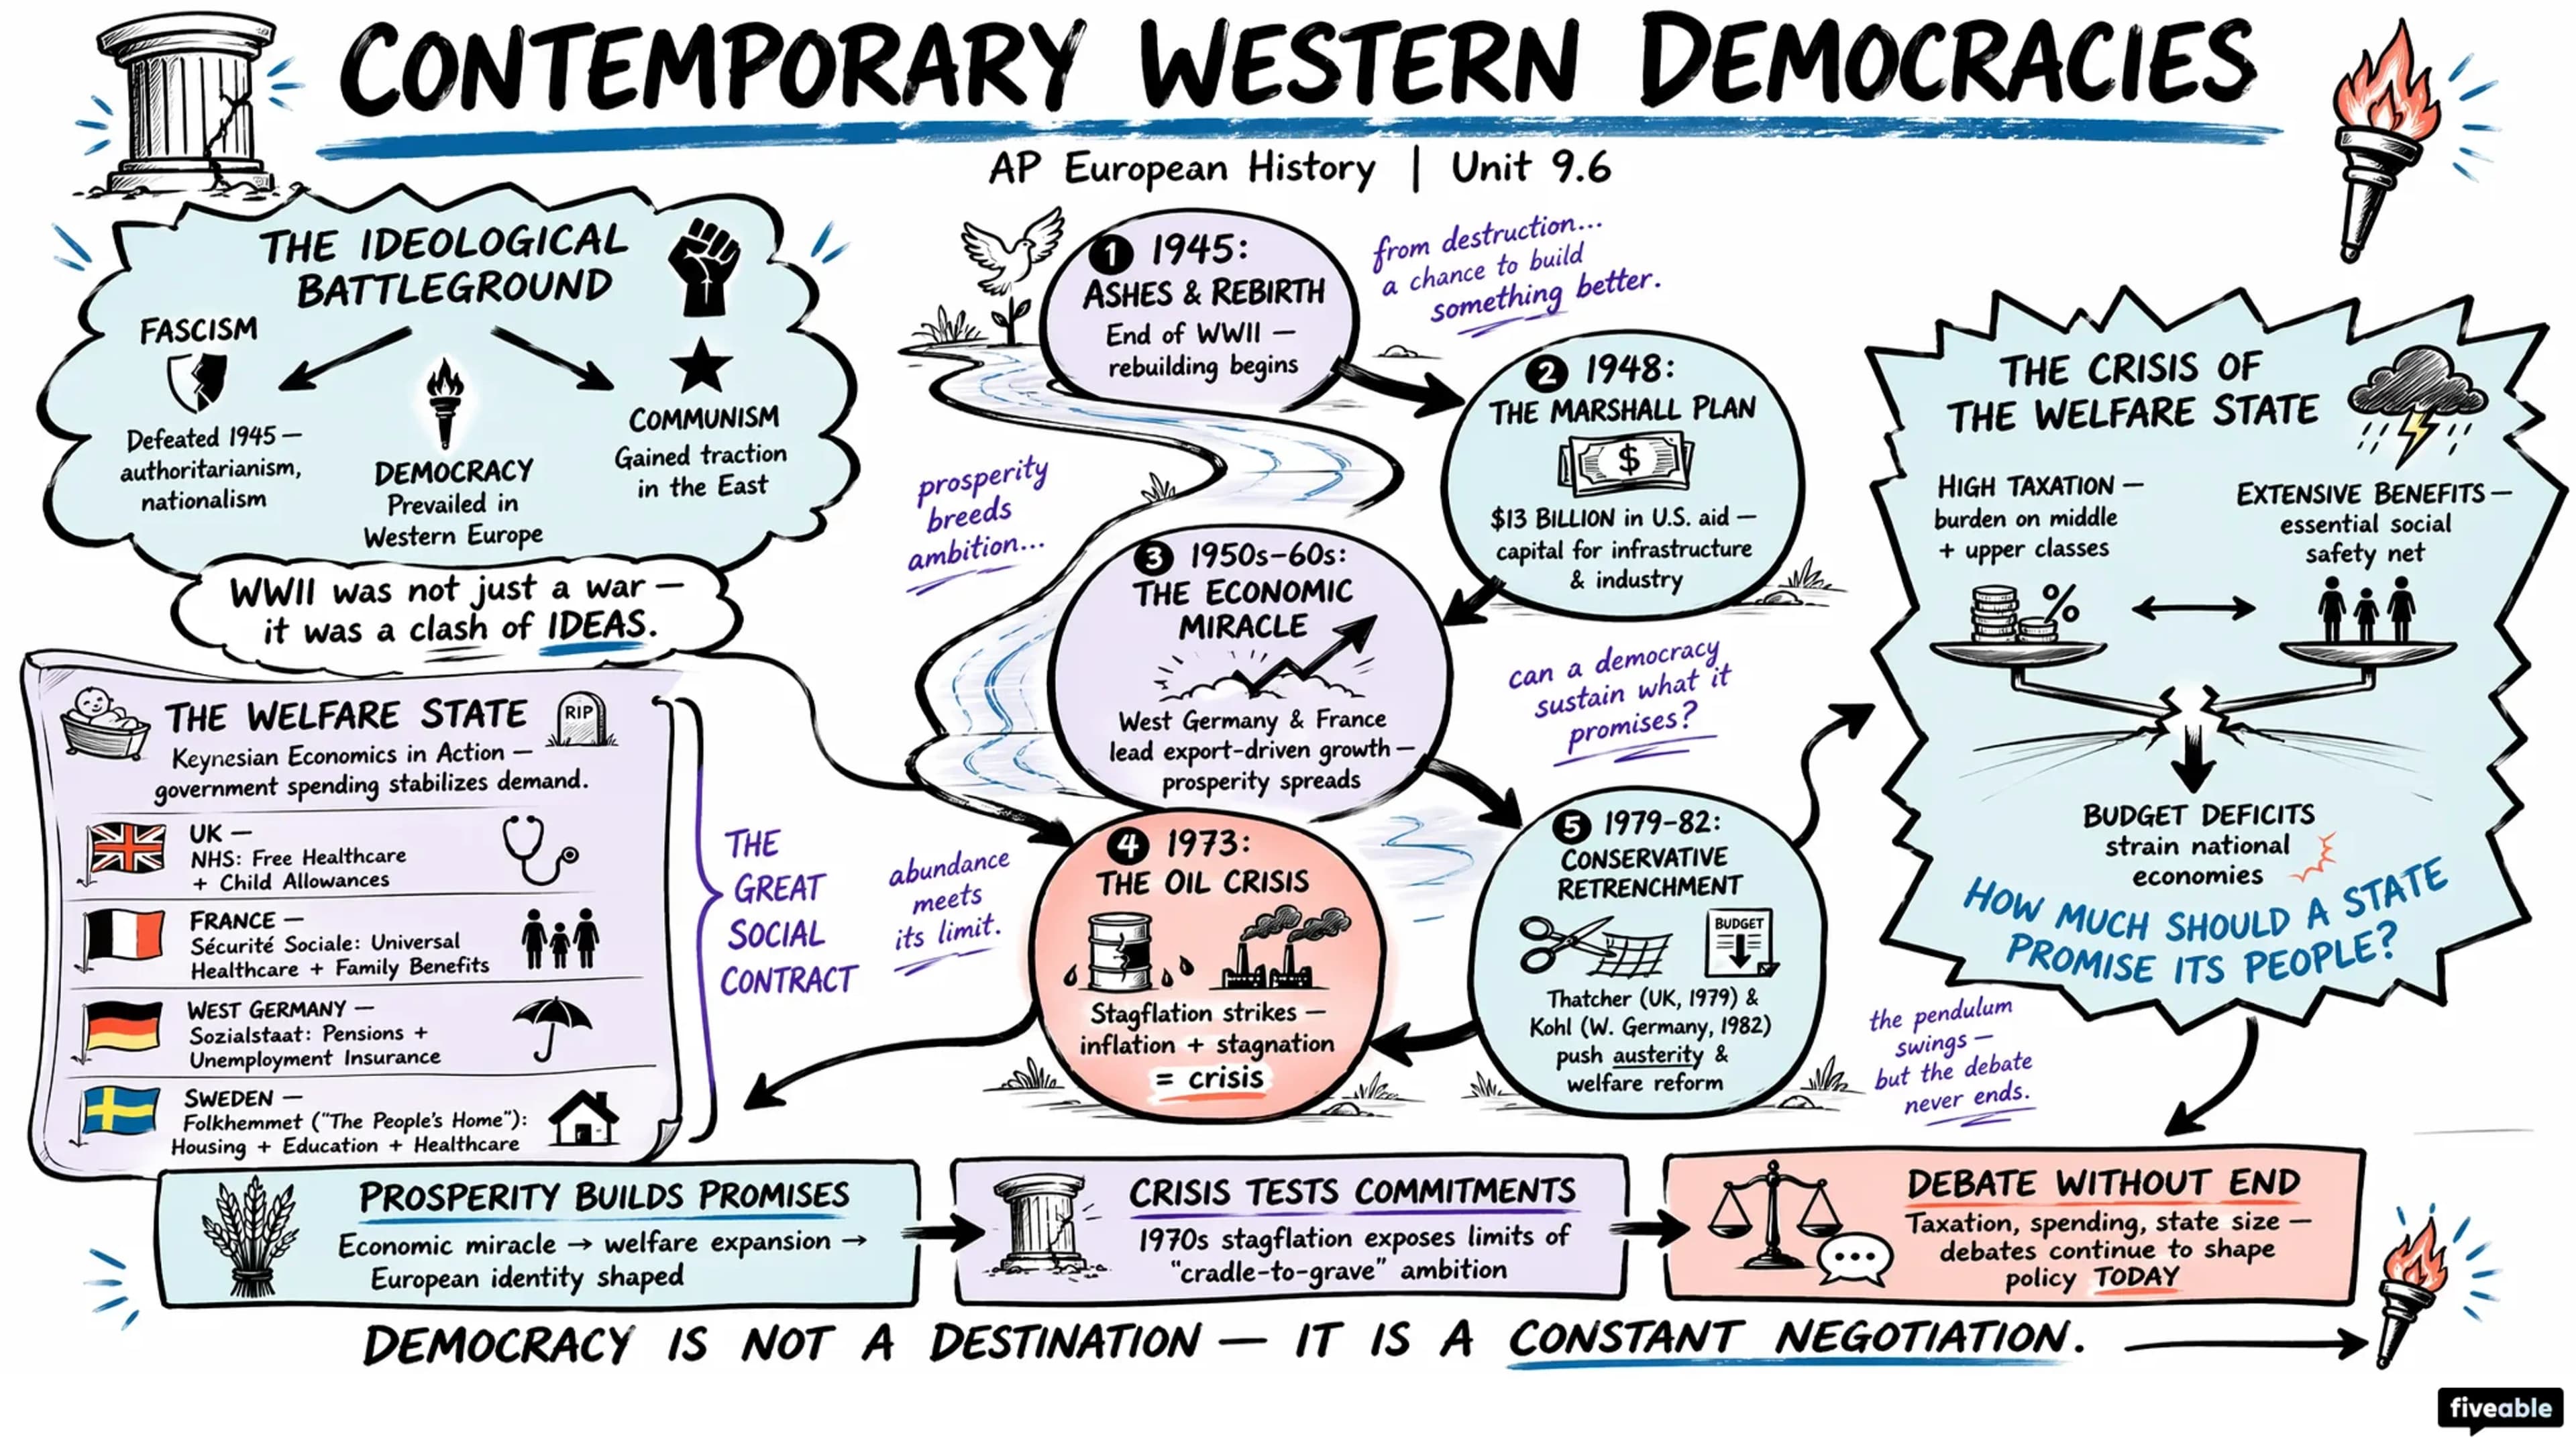 CONTEMPORARY WESTERN DEMOCRACIES
AP European History | Unit 9.6
THE IDEOLOGICAL
BATTLEGROUND
FASCISM
Defeated 1945 —
authoritarianism,
nationalism
DEMOCRACY
Prevailed in
Western Europe
COMMUNISM
Gained traction
in the East
WWII was not just a war —
it was a clash of IDEAS.
THE WELFARE STATE
RIP
Keynesian Economics in Action —
government spending stabilizes demand.
UK —
NHS: Free Healthcare
+ Child Allowances
FRANCE —
Sécurité Sociale: Universal
Healthcare + Family Benefits
WEST GERMANY —
Sozialstaat: Pensions +
Unemployment Insurance
SWEDEN —
Folkhemmet ("The People's Home"):
Housing + Education + Healthcare
THE
GREAT
SOCIAL
CONTRACT
1 1945:
ASHES & REBIRTH
End of WWII —
rebuilding begins
from destruction...
a chance to build
something better.
2 1948:
THE MARSHALL PLAN
$
$13 BILLION in U.S. aid —
capital for infrastructure
& industry
prosperity
breeds
ambition...
3 1950s–60s:
THE ECONOMIC
MIRACLE
West Germany & France
lead export-driven growth —
prosperity spreads
can a democracy
sustain what it
promises?
abundance
meets
its limit.
4 1973:
THE OIL CRISIS
Stagflation strikes —
inflation + stagnation
= crisis
5 1979–82:
CONSERVATIVE
RETRENCHMENT
BUDGET
Thatcher (UK, 1979) &
Kohl (W. Germany, 1982)
push austerity &
welfare reform
THE CRISIS OF
THE WELFARE STATE
HIGH TAXATION —
burden on middle
+ upper classes
%
EXTENSIVE BENEFITS —
essential social
safety net
BUDGET DEFICITS
strain national
economies
HOW MUCH SHOULD A STATE
PROMISE ITS PEOPLE?
the pendulum
swings —
but the debate
never ends.
PROSPERITY BUILDS PROMISES
Economic miracle → welfare expansion →
European identity shaped
CRISIS TESTS COMMITMENTS
1970s stagflation exposes limits of
"cradle-to-grave" ambition
DEBATE WITHOUT END
Taxation, spending, state size —
debates continue to shape
policy TODAY
DEMOCRACY IS NOT A DESTINATION — IT IS A CONSTANT NEGOTIATION.
fiveable